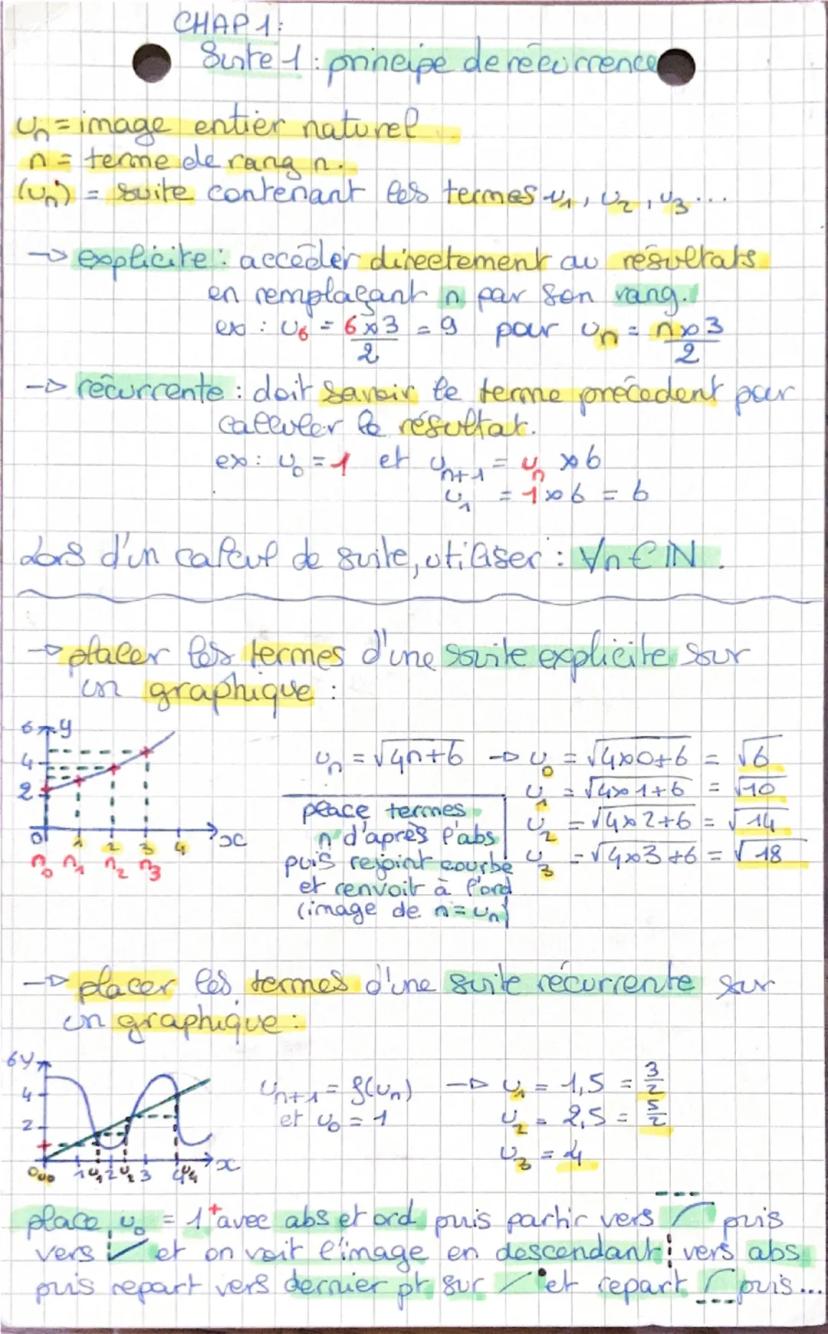 CHAP 1:
Suite 1 : principe de récurrence
un = image entier naturel
n = terme de rang n.
(un) = suite contenant les termes u1, u2, u3...
→ explicite : accéder directement au résultats
en remplaçant n par son rang.
ex : u6 = 6×3/2 = 9 pour un = n×3/2
→ récurrente : doit savoir le terme précedent pour
calculer le résultat.
ex : u0 = 1 et un+1 = un × 6
u1 = 1×6 = 6
Lors d'un calcul de suite, utiliser : ∀n ∈ IN.
→ placer les termes d'une suite explicite sur
un graphique :
6 y
4
2
0 1 2 3 4 x
n0 n1 n2 n3
un = √4n+6 → u0 = √4×0+6 = √6
u1 = √4×1+6 = √10
u2 = √4×2+6 = √14
u3 = √4×3+6 = √18
place termes
n d'après l'abs
puis rejoint courbe
et renvoit à l'ord
(image de n = un)
→ placer les termes d'une suite récurrente sur
un graphique :
6 y
4
2
1 u1 2 u2 3 4 x
un+1 = f(un) → u1 = 1,5 = 3/2
et u0 = 1 u2 = 2,5 = 5/2
u3 = 4
place u0 = 1 + avec abs et ord puis partir vers puis
vers et on voit l'image en descendant vers abs
puis repart vers dernier pt sur et repart puis...